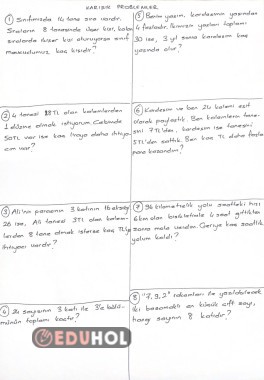 KARIŞIK PROBLEMLER
① Sınıfımızda 14 tane sıra vardır.
Sıraların 8 tanesinde üçer kişi, kalan
sıralarda ikişer kişi oturuyorsa sınıf
mevcudumuz kaç kişidir?
② 4 tanesi TL olan kalemlerden
1 düzine almak istiyorum. Cebimde
50TL var ise kaç liraya daha ihtiyacım
var?
③ Ali'nin parasının 3 katının 16 eksiği
26 ise, Ali tanesi 3TL olan kalemlerden
8 tane almak isterse kaç TL'ye
ihtiyacı vardır?
④ 24 sayısının 3 katı ile 3'e bölümünün
toplamı kaçtır?
⑤ Benim yaşım, kardeşimin yaşından
4 fazladır. İkimizin yaşları toplamı
30 ise, 3 yıl sonra kardeşim kaç
yaşında olur?
⑥ Kardeşim ve ben 24 kalemi eşit
olarak paylaştık. Ben kalemlerin tanesini
7TL'den, kardeşim ise tanesini
5TL'den sattık. Ben kaç TL daha fazla
para kazandım?
⑦ 96 kilometrelik yolu saatteki hızı
km olan bisikletimle 4 saat gittikten
sonra mola verdim. Geriye kaç saatlik
yolum kaldı?
⑧ "7, 9, 2" rakamları ile yazılabilecek
iki basamaklı en küçük çift sayı,
hangi sayının 8 katıdır?
EDUHOL